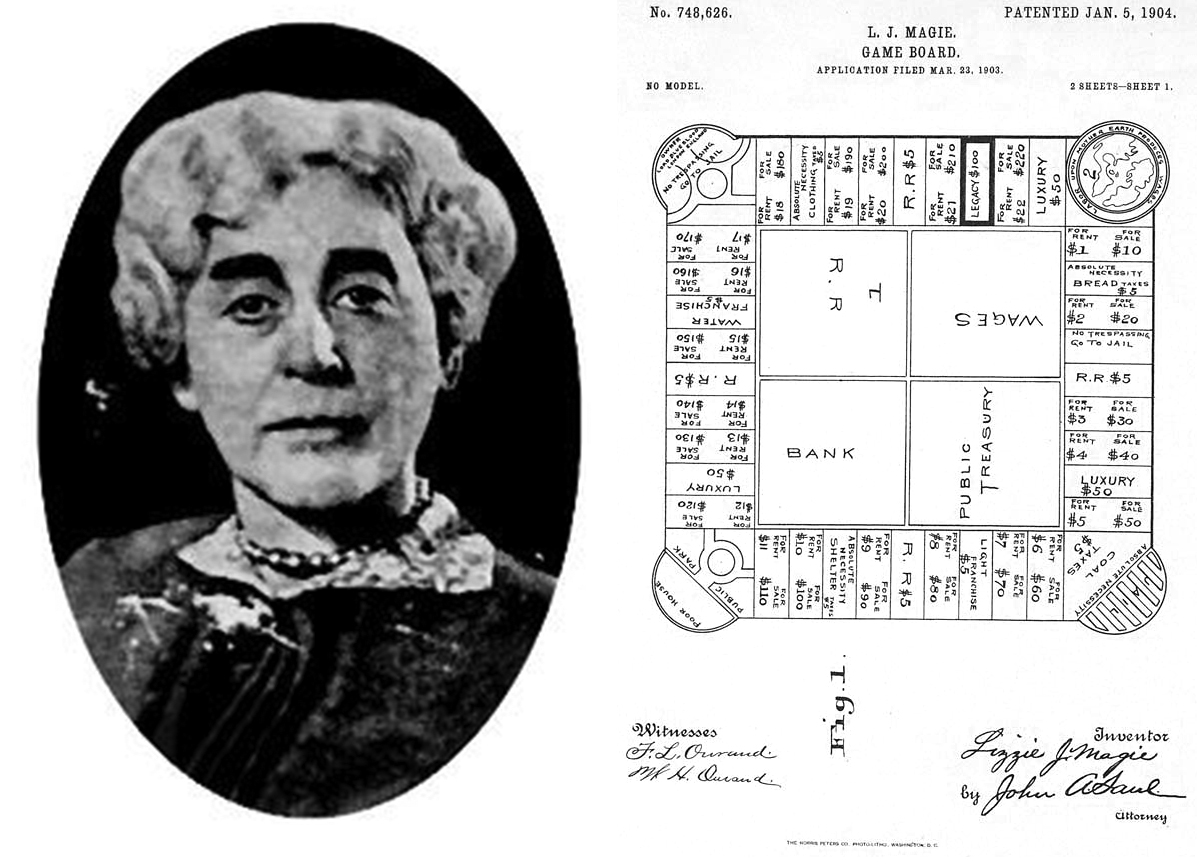 No. 748,626.
PATENTED JAN. 5, 1904.
L. J. MAGIE.
GAME BOARD.
APPLICATION FILED MAR. 23, 1903.
NO MODEL.
2 SHEETS—SHEET 1.
NO TRESPASSING
GO TO JAIL
FOR RENT $18 FOR SALE $180
ABSOLUTE NECESSITY CLOTHING TAXES $5
FOR RENT $19 FOR SALE $190
FOR RENT $20 FOR SALE $200
R.R $5
FOR RENT $21 FOR SALE $210
LEGACY $100
FOR RENT $22 FOR SALE $220
LUXURY $50
LABOR UPON MOTHER EARTH PRODUCES WAGES
FOR RENT $1 FOR SALE $10
ABSOLUTE NECESSITY
BREAD TAXES $5
FOR RENT $2 FOR SALE $20
NO TRESPASSING
GO TO JAIL
R.R $5
FOR RENT $3 FOR SALE $30
FOR RENT $4 FOR SALE $40
LUXURY
$50
FOR RENT $5 FOR SALE $50
ABSOLUTE NECESSITY
COAL
TAXES
$5
FOR RENT $6 FOR SALE $60
FOR RENT $7 FOR SALE $70
LIGHT
FRANCHISE
$5
FOR RENT $8 FOR SALE $80
R.R $5
FOR RENT $9 FOR SALE $90
ABSOLUTE NECESSITY
SHELTER TAXES $5
FOR RENT $10 FOR SALE $100
FOR RENT $11 FOR SALE $110
POOR HOUSE
PUBLIC
PARK
FOR RENT $12 FOR SALE $120
LUXURY
$50
FOR RENT $13 FOR SALE $130
FOR RENT $14 FOR SALE $140
R.R $5
FOR RENT $15 FOR SALE $150
WATER
FRANCHISE
$5
FOR RENT $16 FOR SALE $160
FOR RENT $17 FOR SALE $170
R.R
1
WAGES
BANK
PUBLIC
TREASURY
Fig.1.
Witnesses
Inventor
Lizzie J. Magie
by John A Saul
Attorney
THE NORRIS PETERS CO. PHOTO-LITHO., WASHINGTON, D. C.